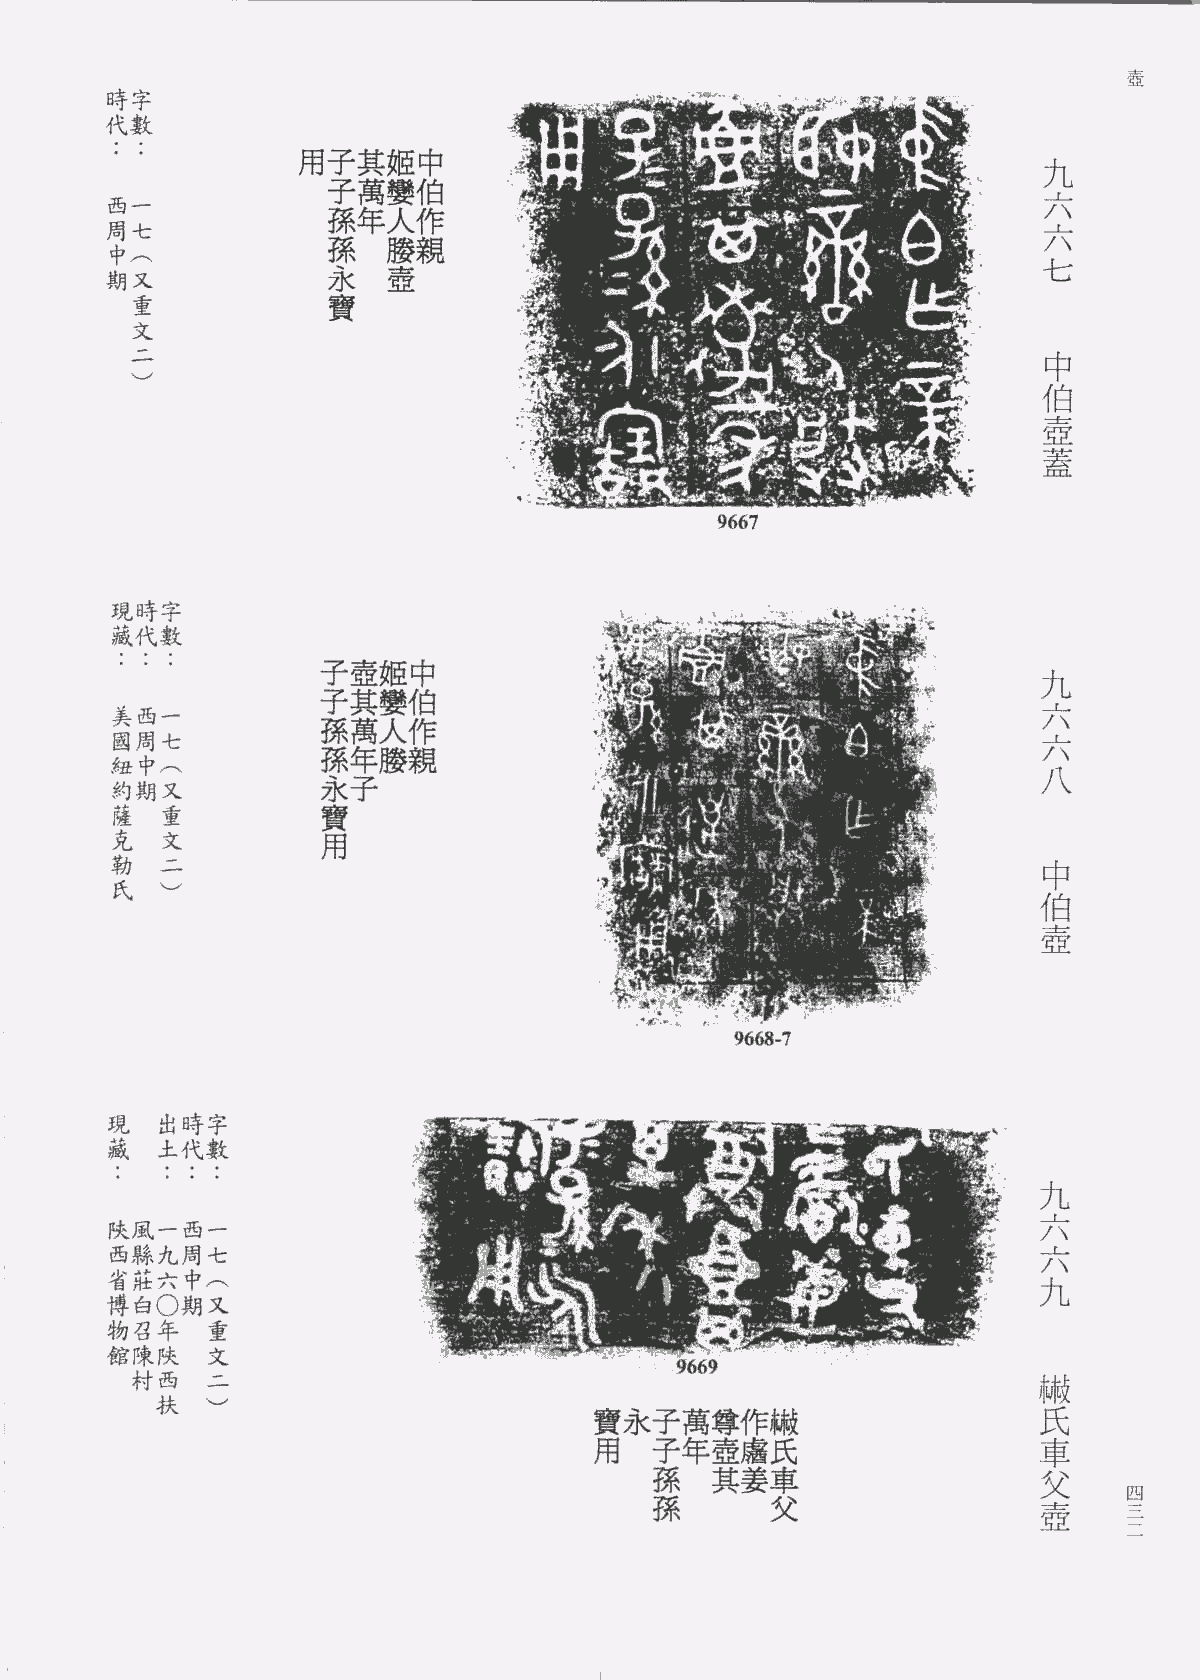 壺
九六六七 中伯壺蓋
中伯作親
姬孌人媵壺
其萬年
子子孫孫永寶
用
字數： 一七（又重文二）
時代： 西周中期
9667
九六六八 中伯壺
中伯作親
姬孌人媵
壺其萬年子
子子孫孫永寶用
字數： 一七（又重文二）
時代： 西周中期
現藏： 美國紐約薩克勒氏
9668-7
九六六九 氏車父壺
9669
氏車父
作姜
尊壺其
萬年
子子孫孫
永
寶用
字數： 一七（又重文二）
時代： 西周中期
出土： 一九六〇年陝西扶
風縣莊白召陳村
現藏： 陝西省博物館
四三二